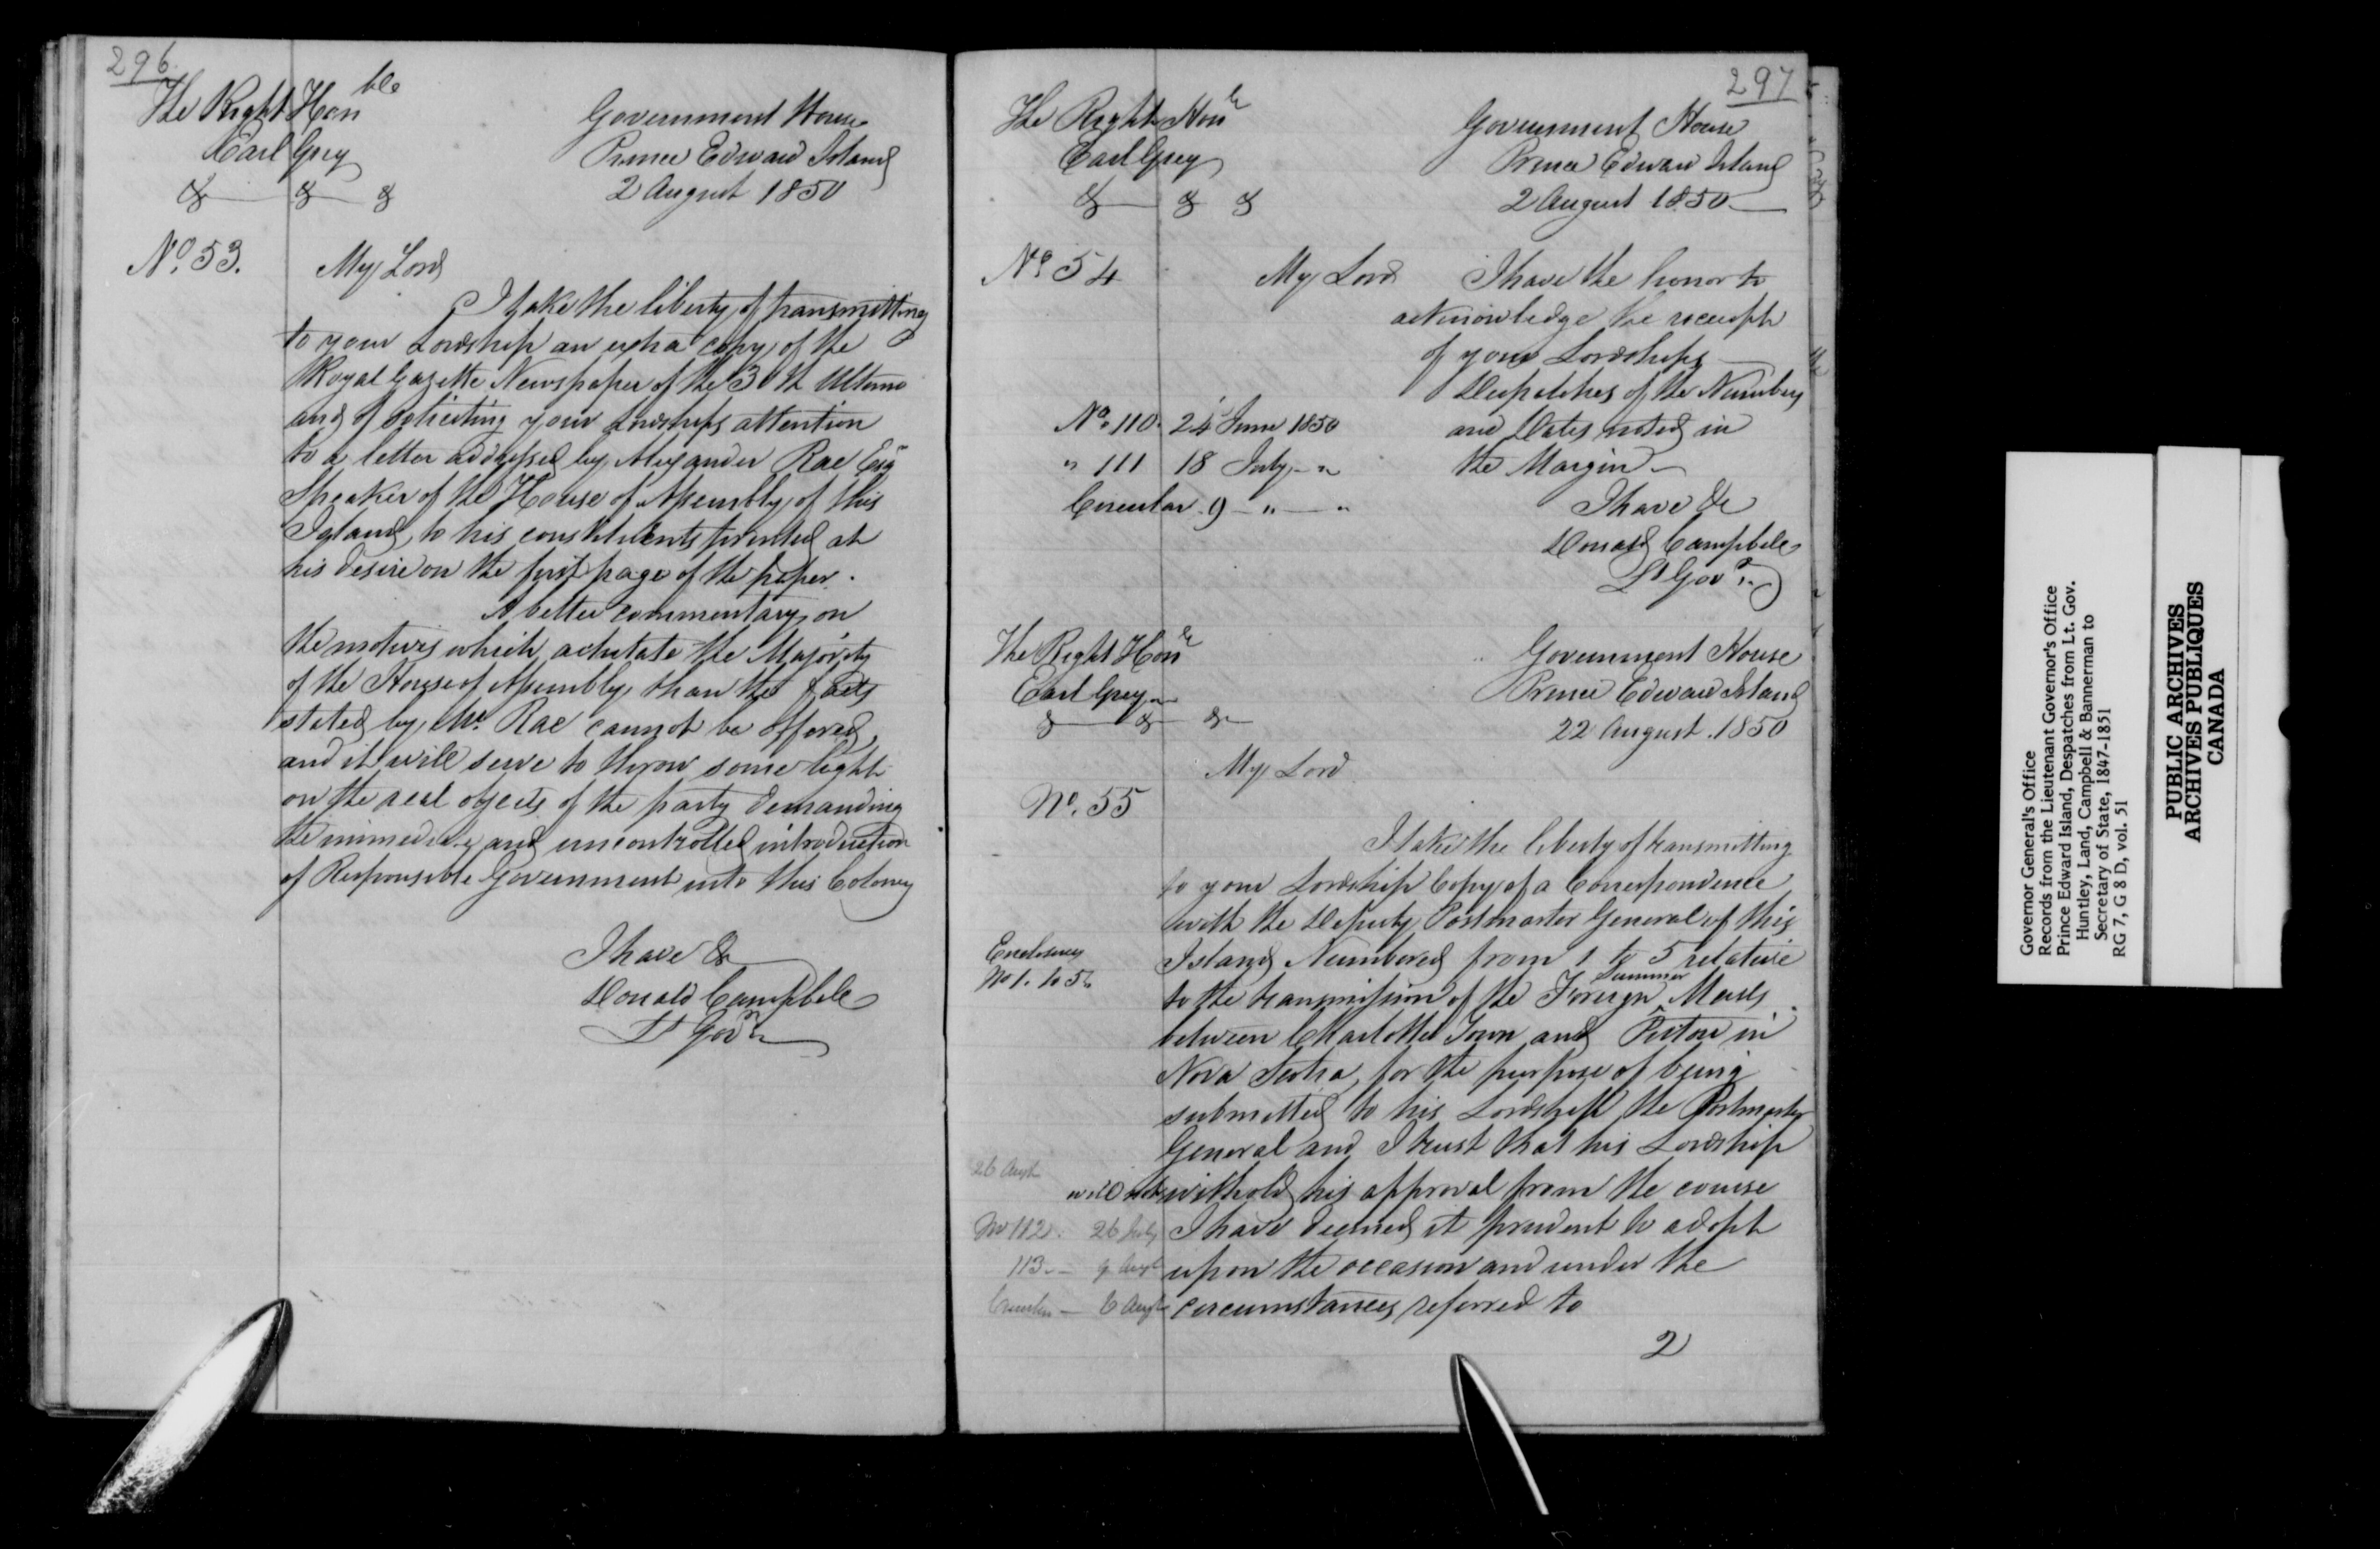 296.
The Right Honble
Earl Grey
& & &
Government House
Prince Edward Island
2 August 1850
No. 53.
My Lord
I take the liberty of transmitting
to your Lordship an extra copy of the
Royal Gazette Newspaper of the 30th Ultimo
and of soliciting your Lordships attention
to a letter addressed by Alexander Rae Esqr
Speaker of the House of Assembly of this
Island, to his constituents printed at
his desire on the first page of the paper.
A better commentary on
the motives which actutate the Majority
of the House of Assembly than the facts
stated by Mr. Rae cannot be offered,
and it will serve to throw some light
on the real objects of the party demanding
the immediate and uncontrolled introduction
of Responsible Government into this Colony
I have &c
Donald Campbell
Lt Govr
297
The Right Honle
Earl Grey
& & &
Government House
Prince Edward Island
2 August 1850
No 54
My Lord I have the honor to
acknowledge the receipt
of your Lordships
Despatches of the Numbers
No. 110. 24 June 1850 and Dates noted in
" 111 18 July - " the Margin
Circular 9 - " - "
I have &c
Donald Campbell
Lt Govr.
The Right Honle
Earl Grey
& & &
Government House
Prince Edward Island
22 August. 1850
My Lord
No. 55
I take the liberty of transmitting
to your Lordship Copy of a Correspondence
with the Deputy Postmaster General of this
Enclosures
No 1. to 5.
Island Numbered from 1 to 5 relative
to the transmission of the Foreign Summer Mails
between Charlotte Town and Pictou in
Nova Scotia, for the purpose of being
submitted to his Lordship the Postmaster
General and I trust that his Lordship
26 Augt
will not withold his approval from the course
No 112. 26 July
I have deemed it prudent to adopt
113 - 9 Augt
upon the occasion and under the
Circular - 6 Augt
circumstances referred to
2
Governor General's Office
Records from the Lieutenant Governor's Office
Prince Edward Island, Despatches from Lt. Gov.
Huntley, Land, Campbell & Bannerman to
Secretary of State, 1847-1851
RG 7, G 8 D, vol. 51
PUBLIC ARCHIVES
ARCHIVES PUBLIQUES
CANADA